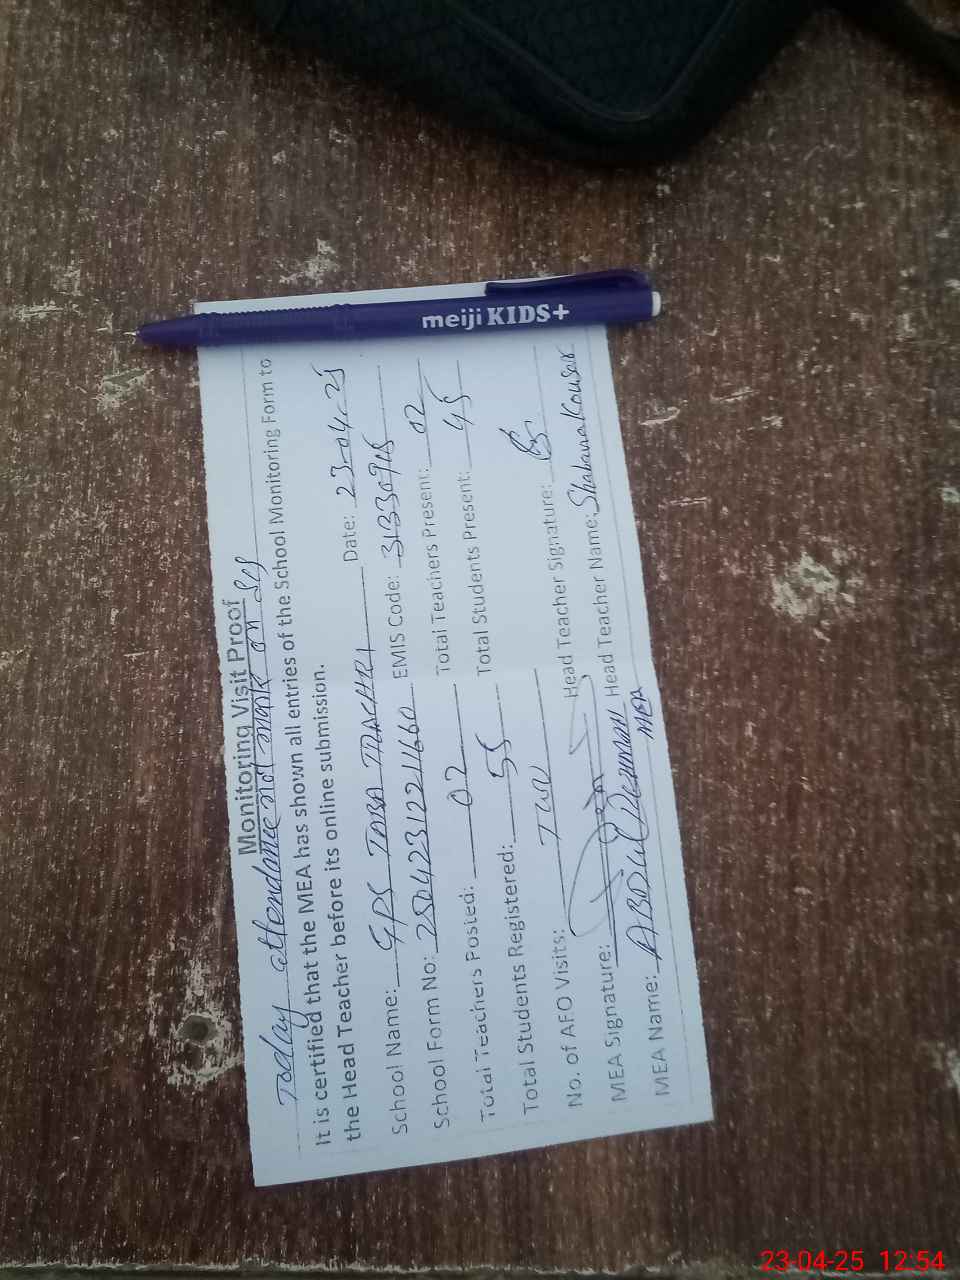 meiji KIDS+
Monitoring Visit Proof
Today attendance not mark on
It is certified that the MEA has shown all entries of the School Monitoring Form to
the Head Teacher before its online submission.
School Name: GPS Date: 23-04-25
School Form No: 250423122111660 EMIS Code: 31330945
Total Teachers Posted: 02 Total Teachers Present: 02
Total Students Registered: 55 Total Students Present: 45
No. of AFO Visits: Two Head Teacher Signature:
MEA Signature: Head Teacher Name: Shabana Kousar
MEA Name: ABDUL Rehman
MEA
23-04-25 12:54